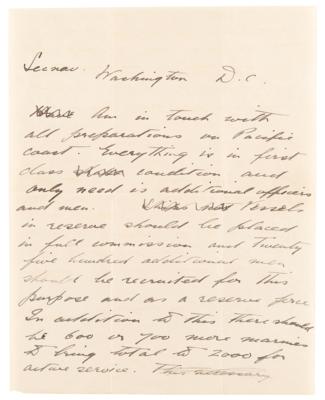 Secnav. Washington D.C.
Am in touch with
all preparations on Pacific
coast. Everything is in first
class condition and
only need is additional officers
and men. Vessels
in reserve should be placed
in full commission and twenty
five hundred additional men
should be recruited for this
purpose and as a reserve force
In addition to this there should
be 600 or 700 more marines
to bring total to 2000 for
active service. This necessary